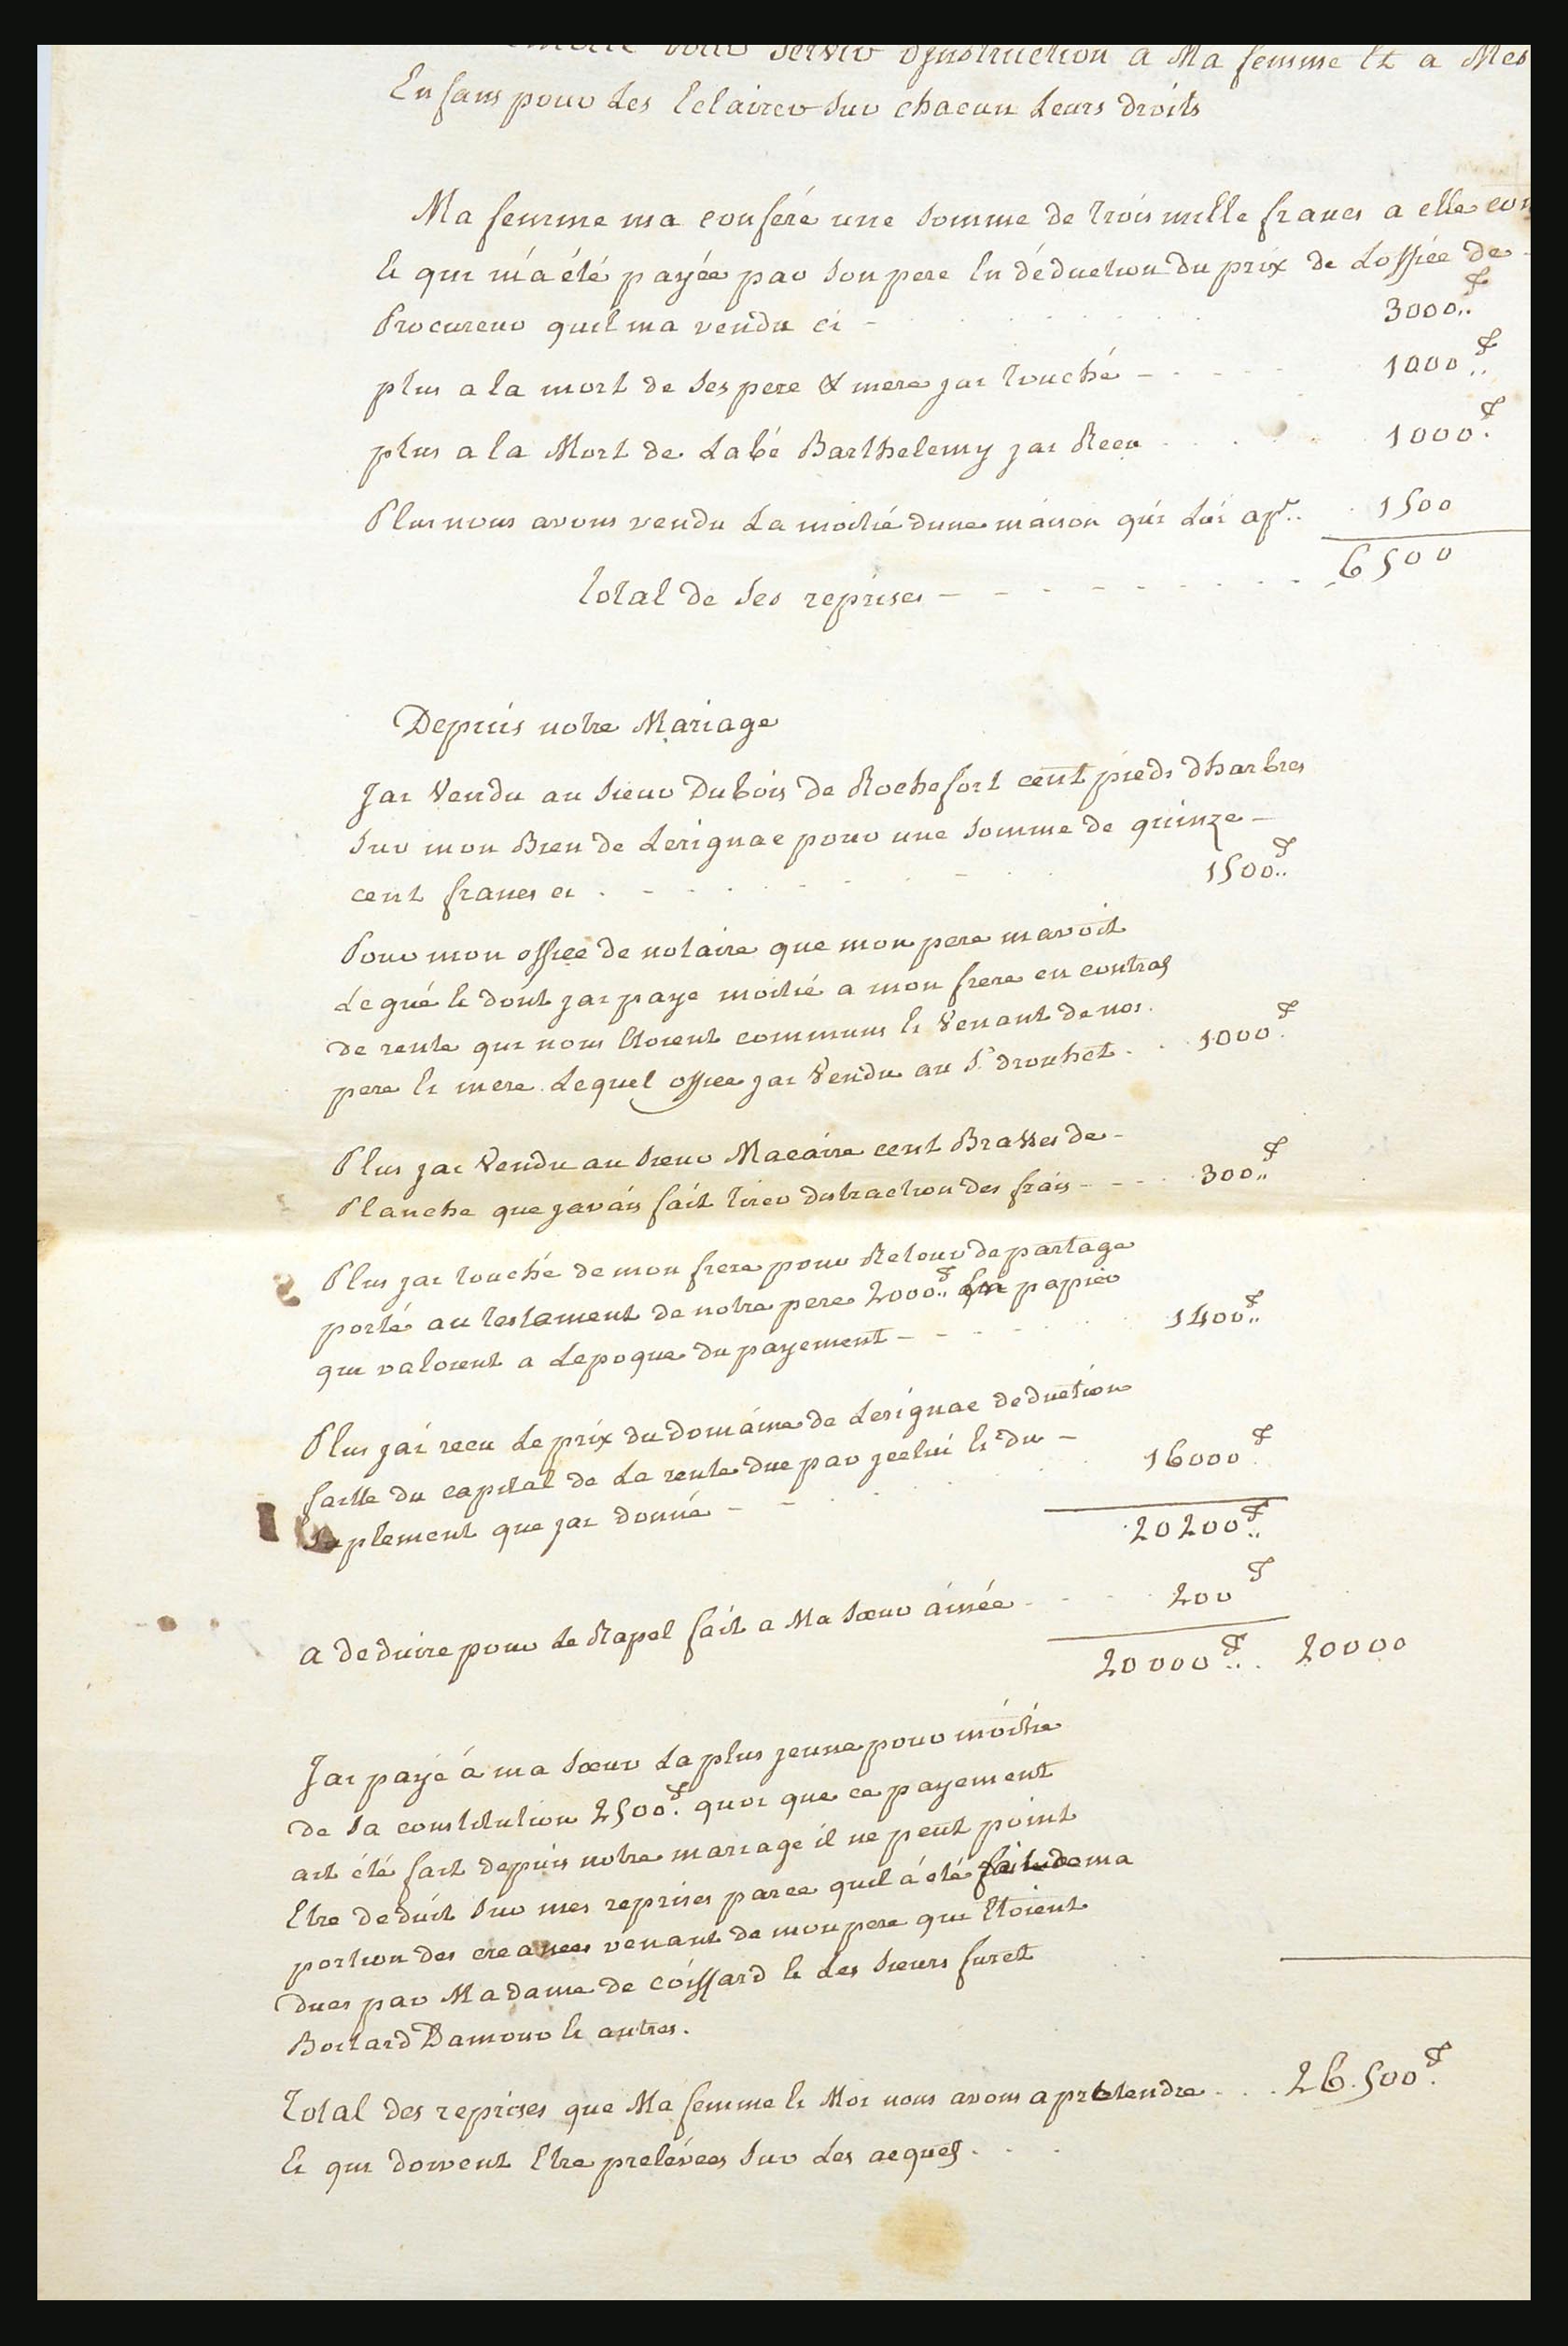 pour servir d'jnstruction a Ma femme Et a Mes
Enfans pour Les Eclairer sur chacun Leurs droits
Ma femme ma conferé une somme de trois mille francs a elle
Et qui m'a été payée par son pere En déduction du prix de Loffice de
Procureur quil ma vendu ci - 3000₶
plus a la mort de ses pere & mere jai touché - 1000₶
plus a la Mort de Labé Barthelemy jai Recu 1000₶
Plus nous avons vendu La moitié dune maison qui Lui apt.. 1500
total de ses reprises - 6500
Depuis notre Mariage
Jai Vendu au sieur Dubois de Rochefort cent pieds dharbres
sur mon Bien de Lerignac pour une somme de quinze -
cent francs ci 1500₶
Pour mon office de notaire que mon pere mavoit
Legué Et dont jai paye moitié a mon frere en contrats
de rente qui nous Etoient communs Et Venant de nos
pere Et mere Lequel office jai Vendu au Sr drouhet 1000₶
Plus jai Vendu au sieur Macaire cent Brasses de -
Planche que javais fait tirer distraction des frais - 300₶
Plus jai touché de mon frere pour Retour de partage
porté au testament de notre pere 2000₶ En papier
qui valoient a Lepoque du payement - 1400₶
Plus jai recu Le prix du domaine de Lerignac deduction
faitte du capital de La rente due par jcelui Et du -
suplement que jai donné - 16000₶
20200₶
a deduire pour Le Rapel fait a Ma sœur ainée 200₶
20000₶ 20000
Jai payé á ma sœur La plus jeune pour moitie
de sa constitution 2500₶ quoi que ce payement
ait été fait depuis notre mariage il ne peut point
Etre deduit sur mes reprises parce quil á eté fait de ma
portion des creances venant de mon pere qui Etoient
dues par Madame de Coissard Et Les sieurs furet
Boitard Damour Et autres.
Total des reprises que Ma femme Et Moi nous avons a pretendre 26.500₶
Et qui doivent Etre prelévées sur Les acquets